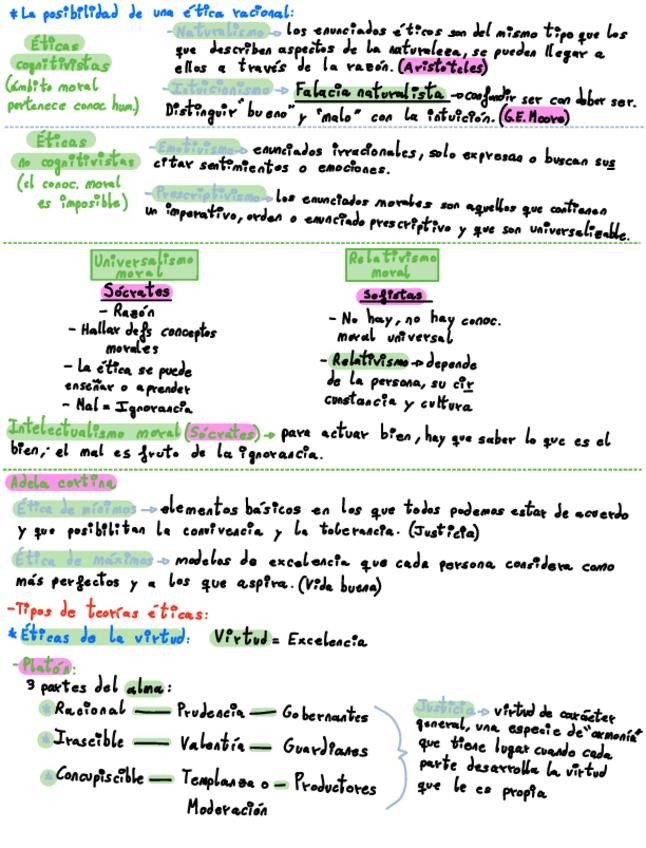 * La posibilidad de una ética racional:
Éticas cognitivistas (ámbito moral pertenece conoc. hum.)
- Naturalismo → los enunciados éticos son del mismo tipo que los
que describen aspectos de la naturaleza, se pueden llegar a
ellos a través de la razón. (Aristóteles)
- Intuicionismo → Falacia naturalista → confundir ser con deber ser.
Distinguir "bueno" y "malo" con la intuición. (G.E. Moore)
Éticas no cognitivistas (el conoc. moral es imposible)
- Emotivismo → enunciados irracionales, solo expresan o buscan sus
citar sentimientos o emociones.
- Prescriptivismo → los enunciados morales son aquellos que contienen
un imperativo, orden o enunciado prescriptivo y que son universalizable.
Universalismo moral
Sócrates
- Razón
- Hallar defs conceptos
morales
- La ética se puede
enseñar o aprender
- Mal = Ignorancia
Relativismo moral
Sofistas
- No hay, no hay conoc.
moral universal
- Relativismo → depende
de la persona, su cir
cunstancia y cultura
Intelectualismo moral (Sócrates) → para actuar bien, hay que saber lo que es el
bien; el mal es fruto de la ignorancia.
Adela cortina
Ética de mínimos → elementos básicos en los que todos podemos estar de acuerdo
y que posibilitan la convivencia y la tolerancia. (Justicia)
Ética de máximos → modelos de excelencia que cada persona considera como
más perfectos y a los que aspira. (Vida buena)
- Tipos de teorías éticas:
* Éticas de la virtud: Virtud = Excelencia
- Platón:
3 partes del alma:
* Racional — Prudencia — Gobernantes
* Irascible — Valentía — Guardianes
* Concupiscible — Templanza o — Productores
Moderación
Justicia → virtud de carácter
general, una especie de "armonía"
que tiene lugar cuando cada
parte desarrolla la virtud
que le es propia